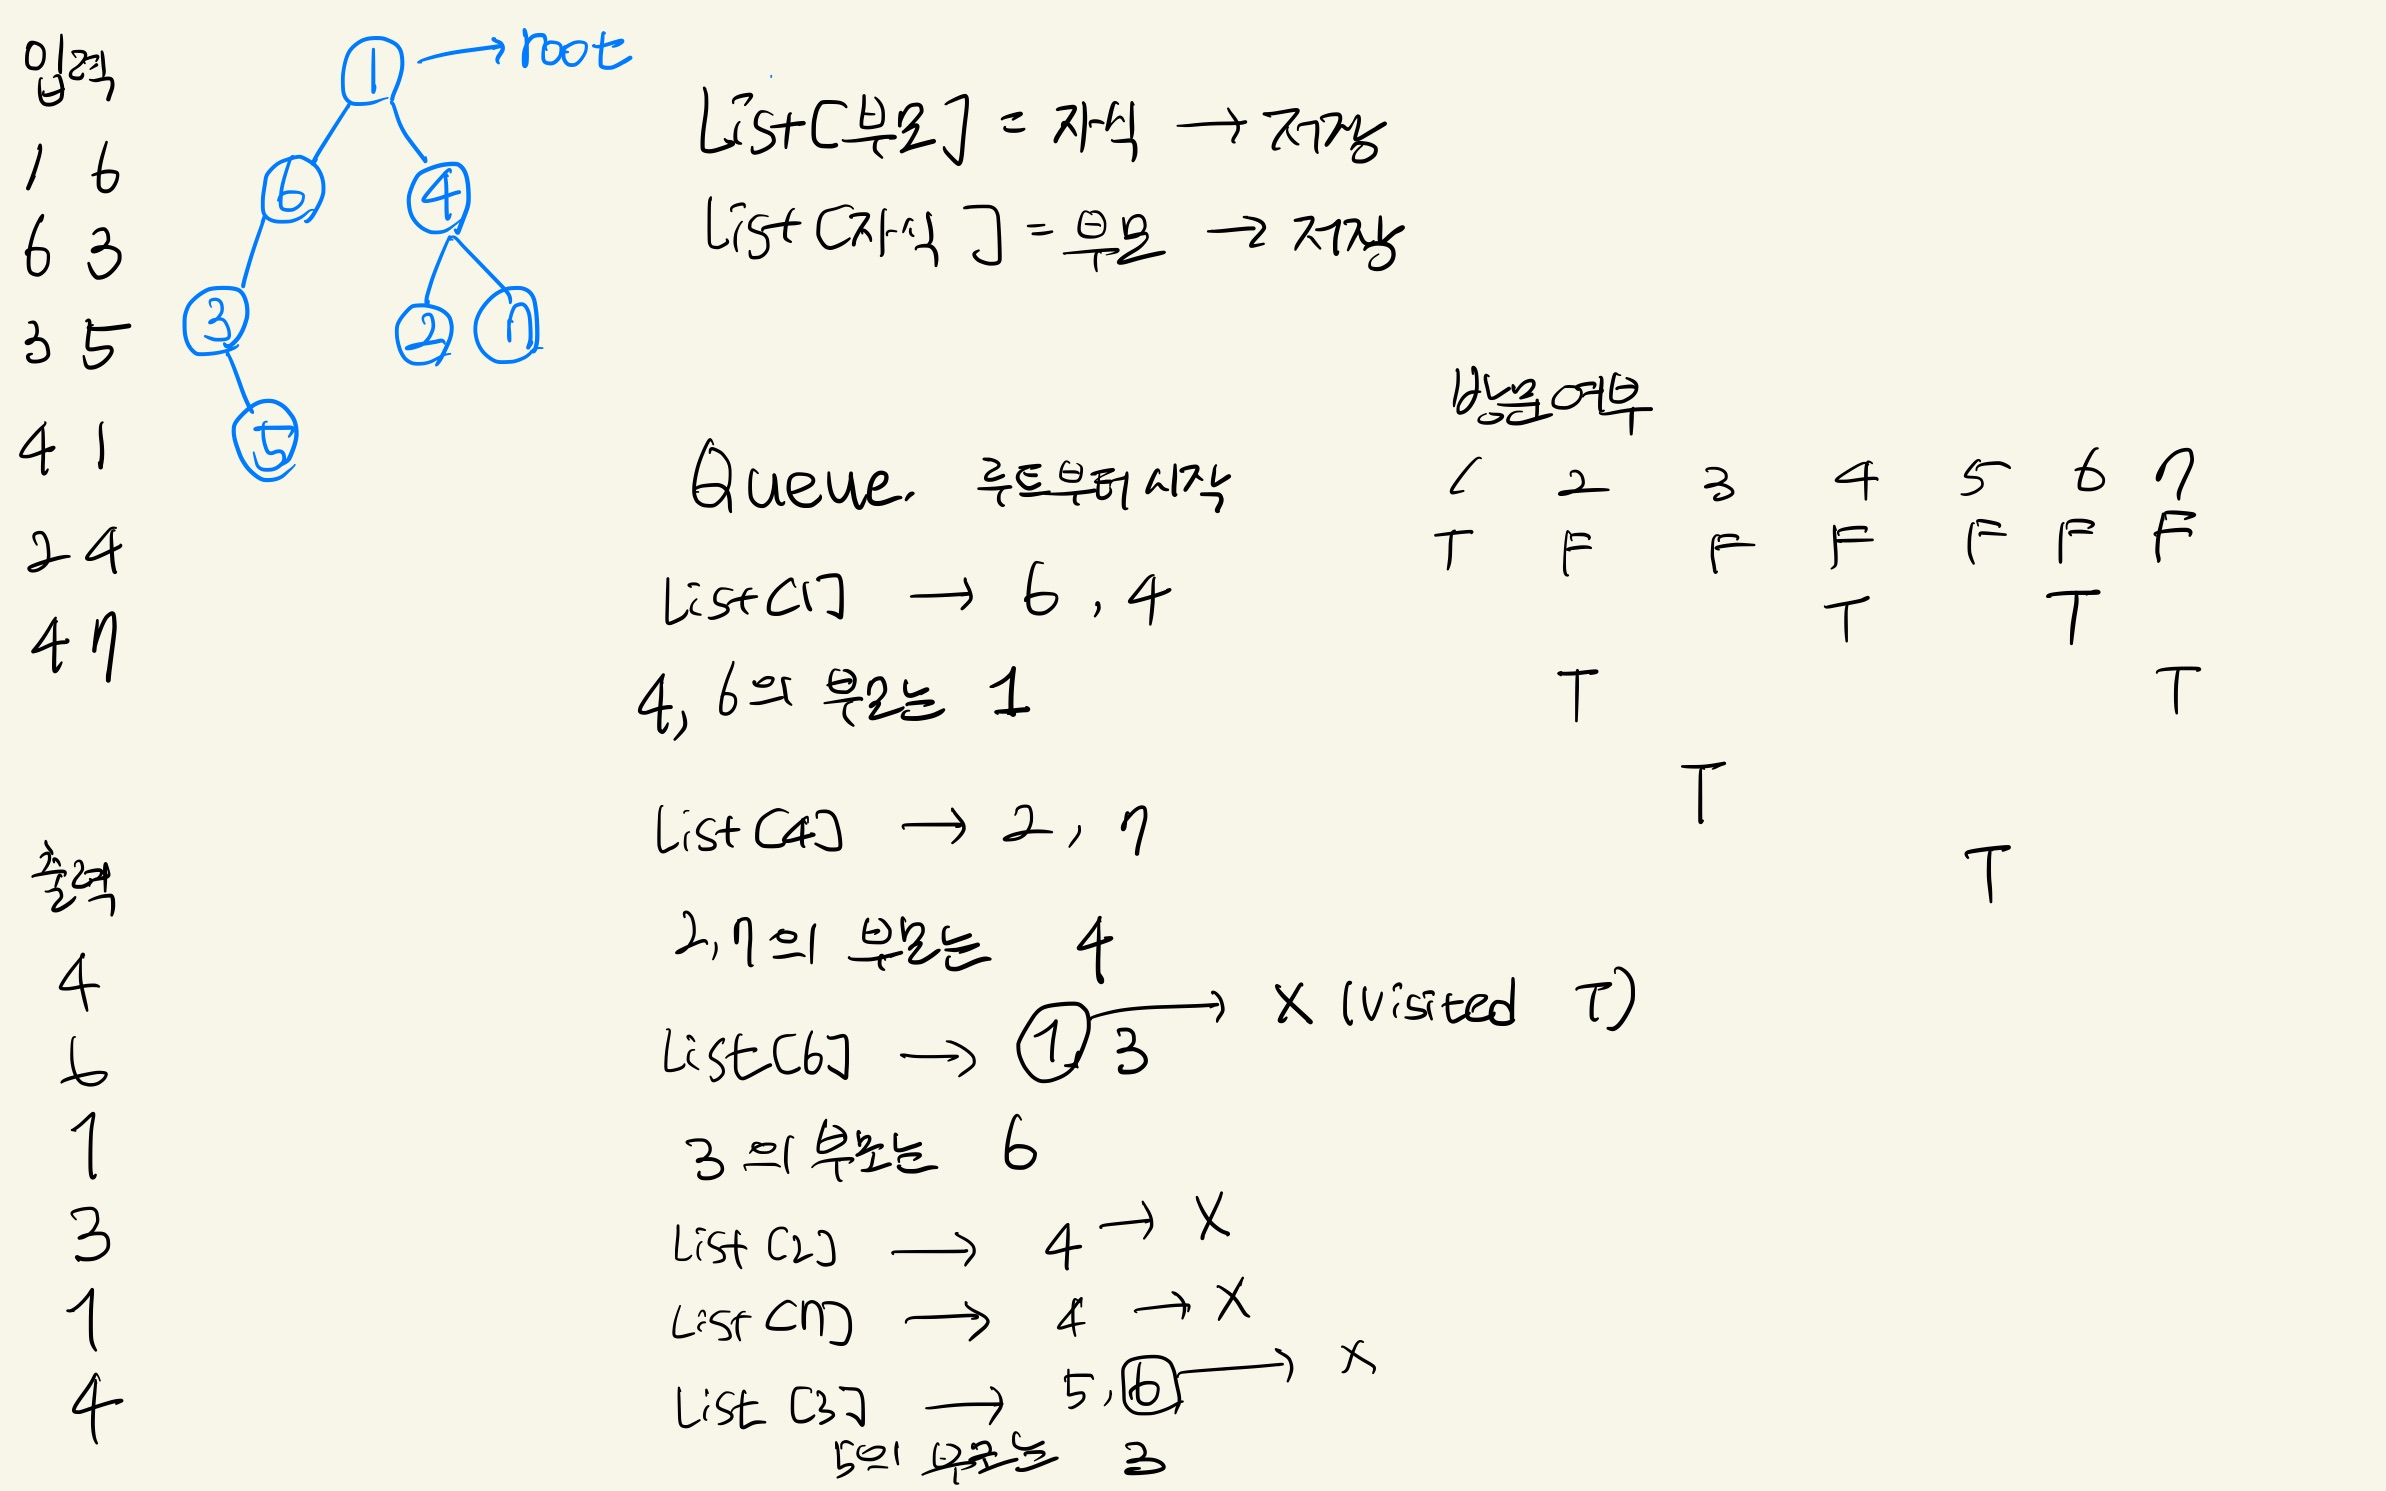 입력
1 6
6 3
3 5
4 1
2 4
4 7
출력
4
6
1
3
1
4
1 → root
6 4
3 2 7
5
List[부모] = 자식 → 저장
List[자식] = 부모 → 저장
Queue. 루트부터 시작
List[1] → 6, 4
4, 6의 부모는 1
List[4] → 2, 7
2, 7의 부모는 4
List[6] → 1, 3 → X (Visited T)
3의 부모는 6
List[2] → 4 → X
List[7] → 4 → X
List[3] → 5, 6 → X
5의 부모는 3
방문여부
1 2 3 4 5 6 7
T F F F F F F
T T
T T
T
T